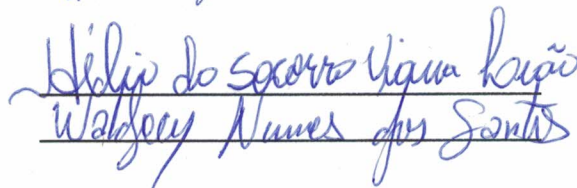 Hélio do Socorro Viana
Waldecy Nunes dos Santos